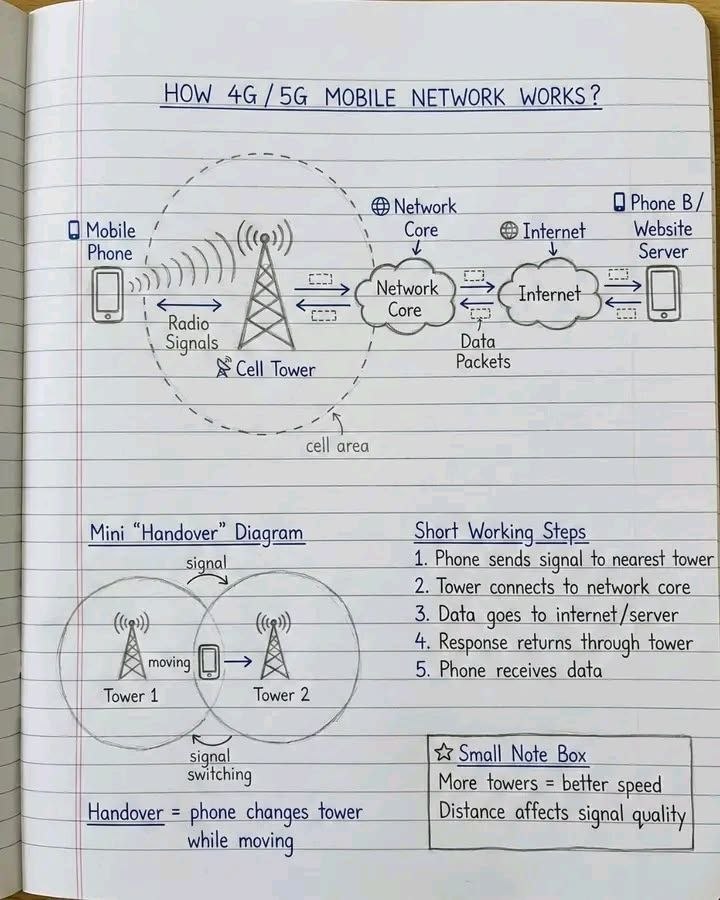 HOW 4G/5G MOBILE NETWORK WORKS?
Mobile
Phone
Radio
Signals
Cell Tower
cell area
Network
Core
Network
Core
Internet
Internet
Data
Packets
Phone B/
Website
Server
Mini "Handover" Diagram
signal
moving
Tower 1
Tower 2
signal
switching
Handover = phone changes tower
while moving
Short Working Steps
1. Phone sends signal to nearest tower
2. Tower connects to network core
3. Data goes to internet/server
4. Response returns through tower
5. Phone receives data
Small Note Box
More towers = better speed
Distance affects signal quality